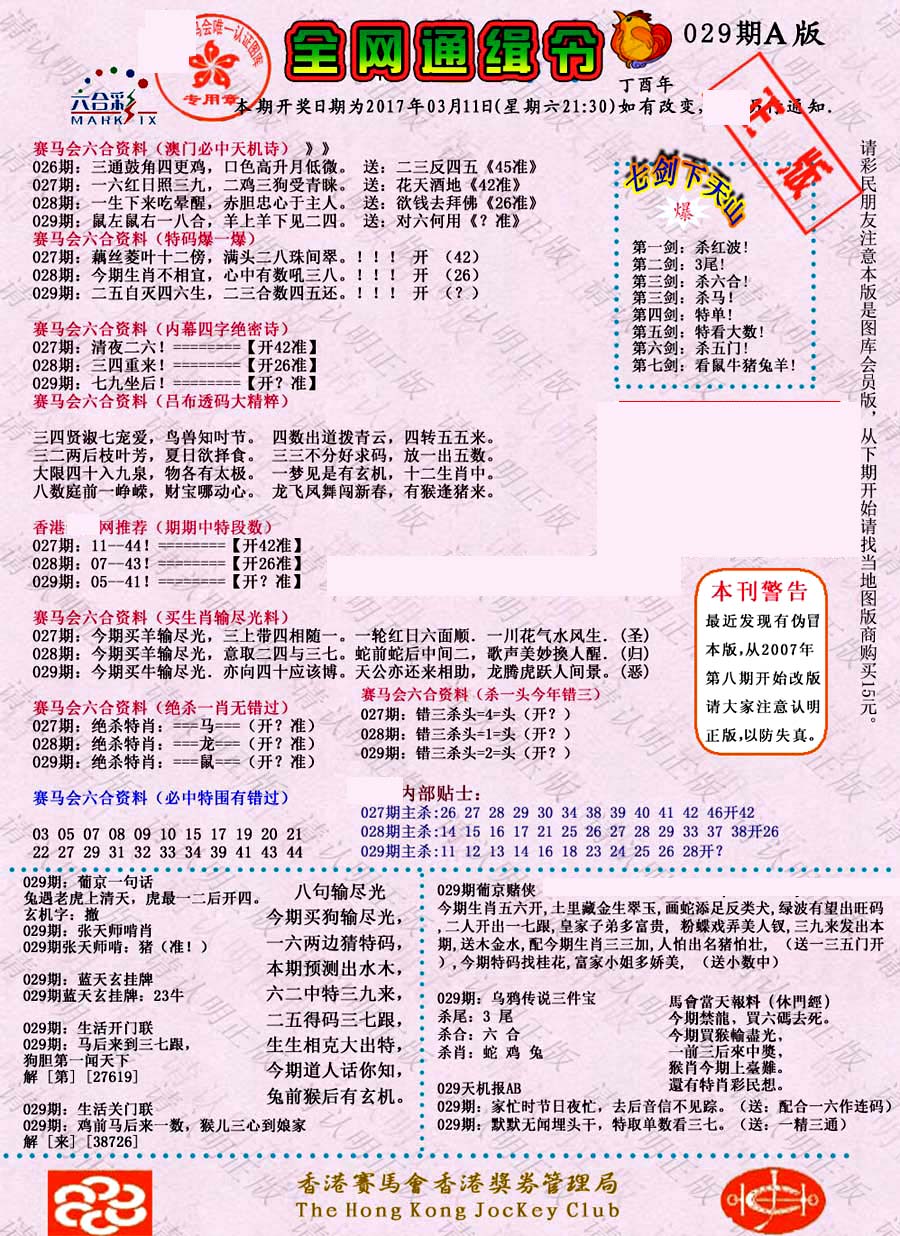 全网通缉令
029期A版
丁酉年
马会唯一认证图库
专用章
六合彩
MARK SIX
本期开奖日期为2017年03月11日(星期六21:30)如有改变,
通知.
正版
赛马会六合资料(澳门必中天机诗) 》》
026期: 三通鼓角四更鸡, 口色高升月低微。 送: 二三反四五《45准》
027期: 一六红日照三九, 二鸡三狗受青睐。 送: 花天酒地《42准》
028期: 一生下来吃晕醒, 赤胆忠心于主人。 送: 欲钱去拜佛《26准》
029期: 鼠左鼠右一八合, 羊上羊下见二四。 送: 对六何用《? 准》
赛马会六合资料(特码爆一爆)
027期: 藕丝菱叶十二傍, 满头二八珠间翠。!!! 开 (42)
028期: 今期生肖不相宜, 心中有数吼三八。!!! 开 (26)
029期: 二五自灭四六生, 二三合数四五还。!!! 开 (?)
赛马会六合资料(内幕四字绝密诗)
027期: 清夜二六! ========【开42准】
028期: 三四重来! ========【开26准】
029期: 七九坐后! ========【开? 准】
赛马会六合资料(吕布透码大精粹)
三四贤淑七宠爱, 鸟兽知时节。 四数出道拨青云, 四转五五来。
三二两后枝叶芳, 夏日欲择食。 三三不分好求码, 放一出五数。
大限四十入九泉, 物各有太极。 一梦见是有玄机, 十二生肖中。
八数庭前一峥嵘, 财宝哪动心。 龙飞凤舞闯新春, 有猴逢猪来。
香港 网推荐(期期中特段数)
027期: 11--44! ========【开42准】
028期: 07--43! ========【开26准】
029期: 05--41! ========【开? 准】
赛马会六合资料(买生肖输尽光料)
027期: 今期买羊输尽光, 三上带四相随一。一轮红日六面顺. 一川花气水风生. (圣)
028期: 今期买羊输尽光, 意取二四与三七。蛇前蛇后中间二, 歌声美妙换人醒. (归)
029期: 今期买牛输尽光. 亦向四十应该博。天公亦还来相助, 龙腾虎跃人间景。(恶)
赛马会六合资料(绝杀一肖无错过)
027期: 绝杀特肖: ===马===(开? 准)
028期: 绝杀特肖: ===龙===(开? 准)
029期: 绝杀特肖: ===鼠===(开? 准)
赛马会六合资料(杀一头今年错三)
027期: 错三杀头=4=头(开? )
028期: 错三杀头=1=头(开? )
029期: 错三杀头=2=头(开? )
赛马会六合资料(必中特围有错过)
03 05 07 08 09 10 15 17 19 20 21
22 27 29 31 32 33 34 39 41 43 44
内部贴士:
027期主杀:26 27 28 29 30 34 38 39 40 41 42 46开42
028期主杀:14 15 16 17 21 25 26 27 28 29 33 37 38开26
029期主杀:11 12 13 14 16 18 23 24 25 26 28开?
七剑下天山
爆
第一剑: 杀红波!
第二剑: 3尾!
第三剑: 杀六合!
第三剑: 杀马!
第四剑: 特单!
第五剑: 特看大数!
第六剑: 杀五门!
第七剑: 看鼠牛猪兔羊!
请彩民朋友注意本版是图库会员版, 从下期开始请找当地图版商购买15元。
本刊警告
最近发现有伪冒
本版,从2007年
第八期开始改版
请大家注意认明
正版,以防失真。
029期: 葡京一句话
兔遇老虎上清天, 虎最一二后开四。
玄机字: 撤
029期: 张天师啃肖
029期张天师啃: 猪(准!)
029期: 蓝天玄挂牌
029期蓝天玄挂牌: 23牛
029期: 生活开门联
029期: 马后来到三七跟,
狗胆第一闻天下
解 [第] [27619]
029期: 生活关门联
029期: 鸡前马后来一数, 猴儿三心到娘家
解 [来] [38726]
八句输尽光
今期买狗输尽光,
一六两边猜特码,
本期预测出水木,
六二中特三九来,
二五得码三七跟,
生生相克大出特,
今期道人话你知,
兔前猴后有玄机。
029期葡京赌侠
今期生肖五六开, 土里藏金生翠玉, 画蛇添足反类犬, 绿波有望出旺码
, 二人开出一七跟, 皇家子弟多富贵, 粉蝶戏弄美人钗, 三九来发出本
期, 送木金水, 配今期生肖三三加, 人怕出名猪怕壮, (送一三五门开
), 今期特码找桂花, 富家小姐多娇美, (送小数中)
029期: 乌鸦传说三件宝
杀尾: 3 尾
杀合: 六 合
杀肖: 蛇 鸡 兔
馬會當天報料(休門經)
今期禁龍、買六碼去死。
今期買猴輸盡光,
一前三后來中獎,
猴肖今期上臺難。
還有特肖彩民想。
029天机报AB
029期: 家忙时节日夜忙, 去后音信不见踪。(送: 配合一六作连码)
029期: 默默无闻埋头干, 特取单数看三七。(送: 一精三通)
香港賽馬會香港獎券管理局
The Hong Kong JocKey Club